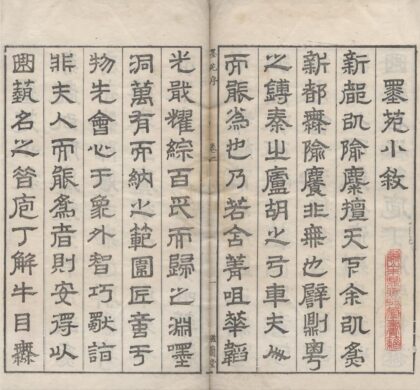 墨苑小敘
新都以隃麋擅天下余以為
新都無隃麋非無也譬則粵
之鎛秦之廬胡之弓車夫人
而能為也乃若含菁咀華韜
墨苑序
滋蘭堂
光戢耀綜百氏而歸之淵嘿
洞萬有而納之範圍匠意于
物先會心于象外智巧詣
非夫人而能為者則安得以
曲藝名之昔庖丁解牛目無